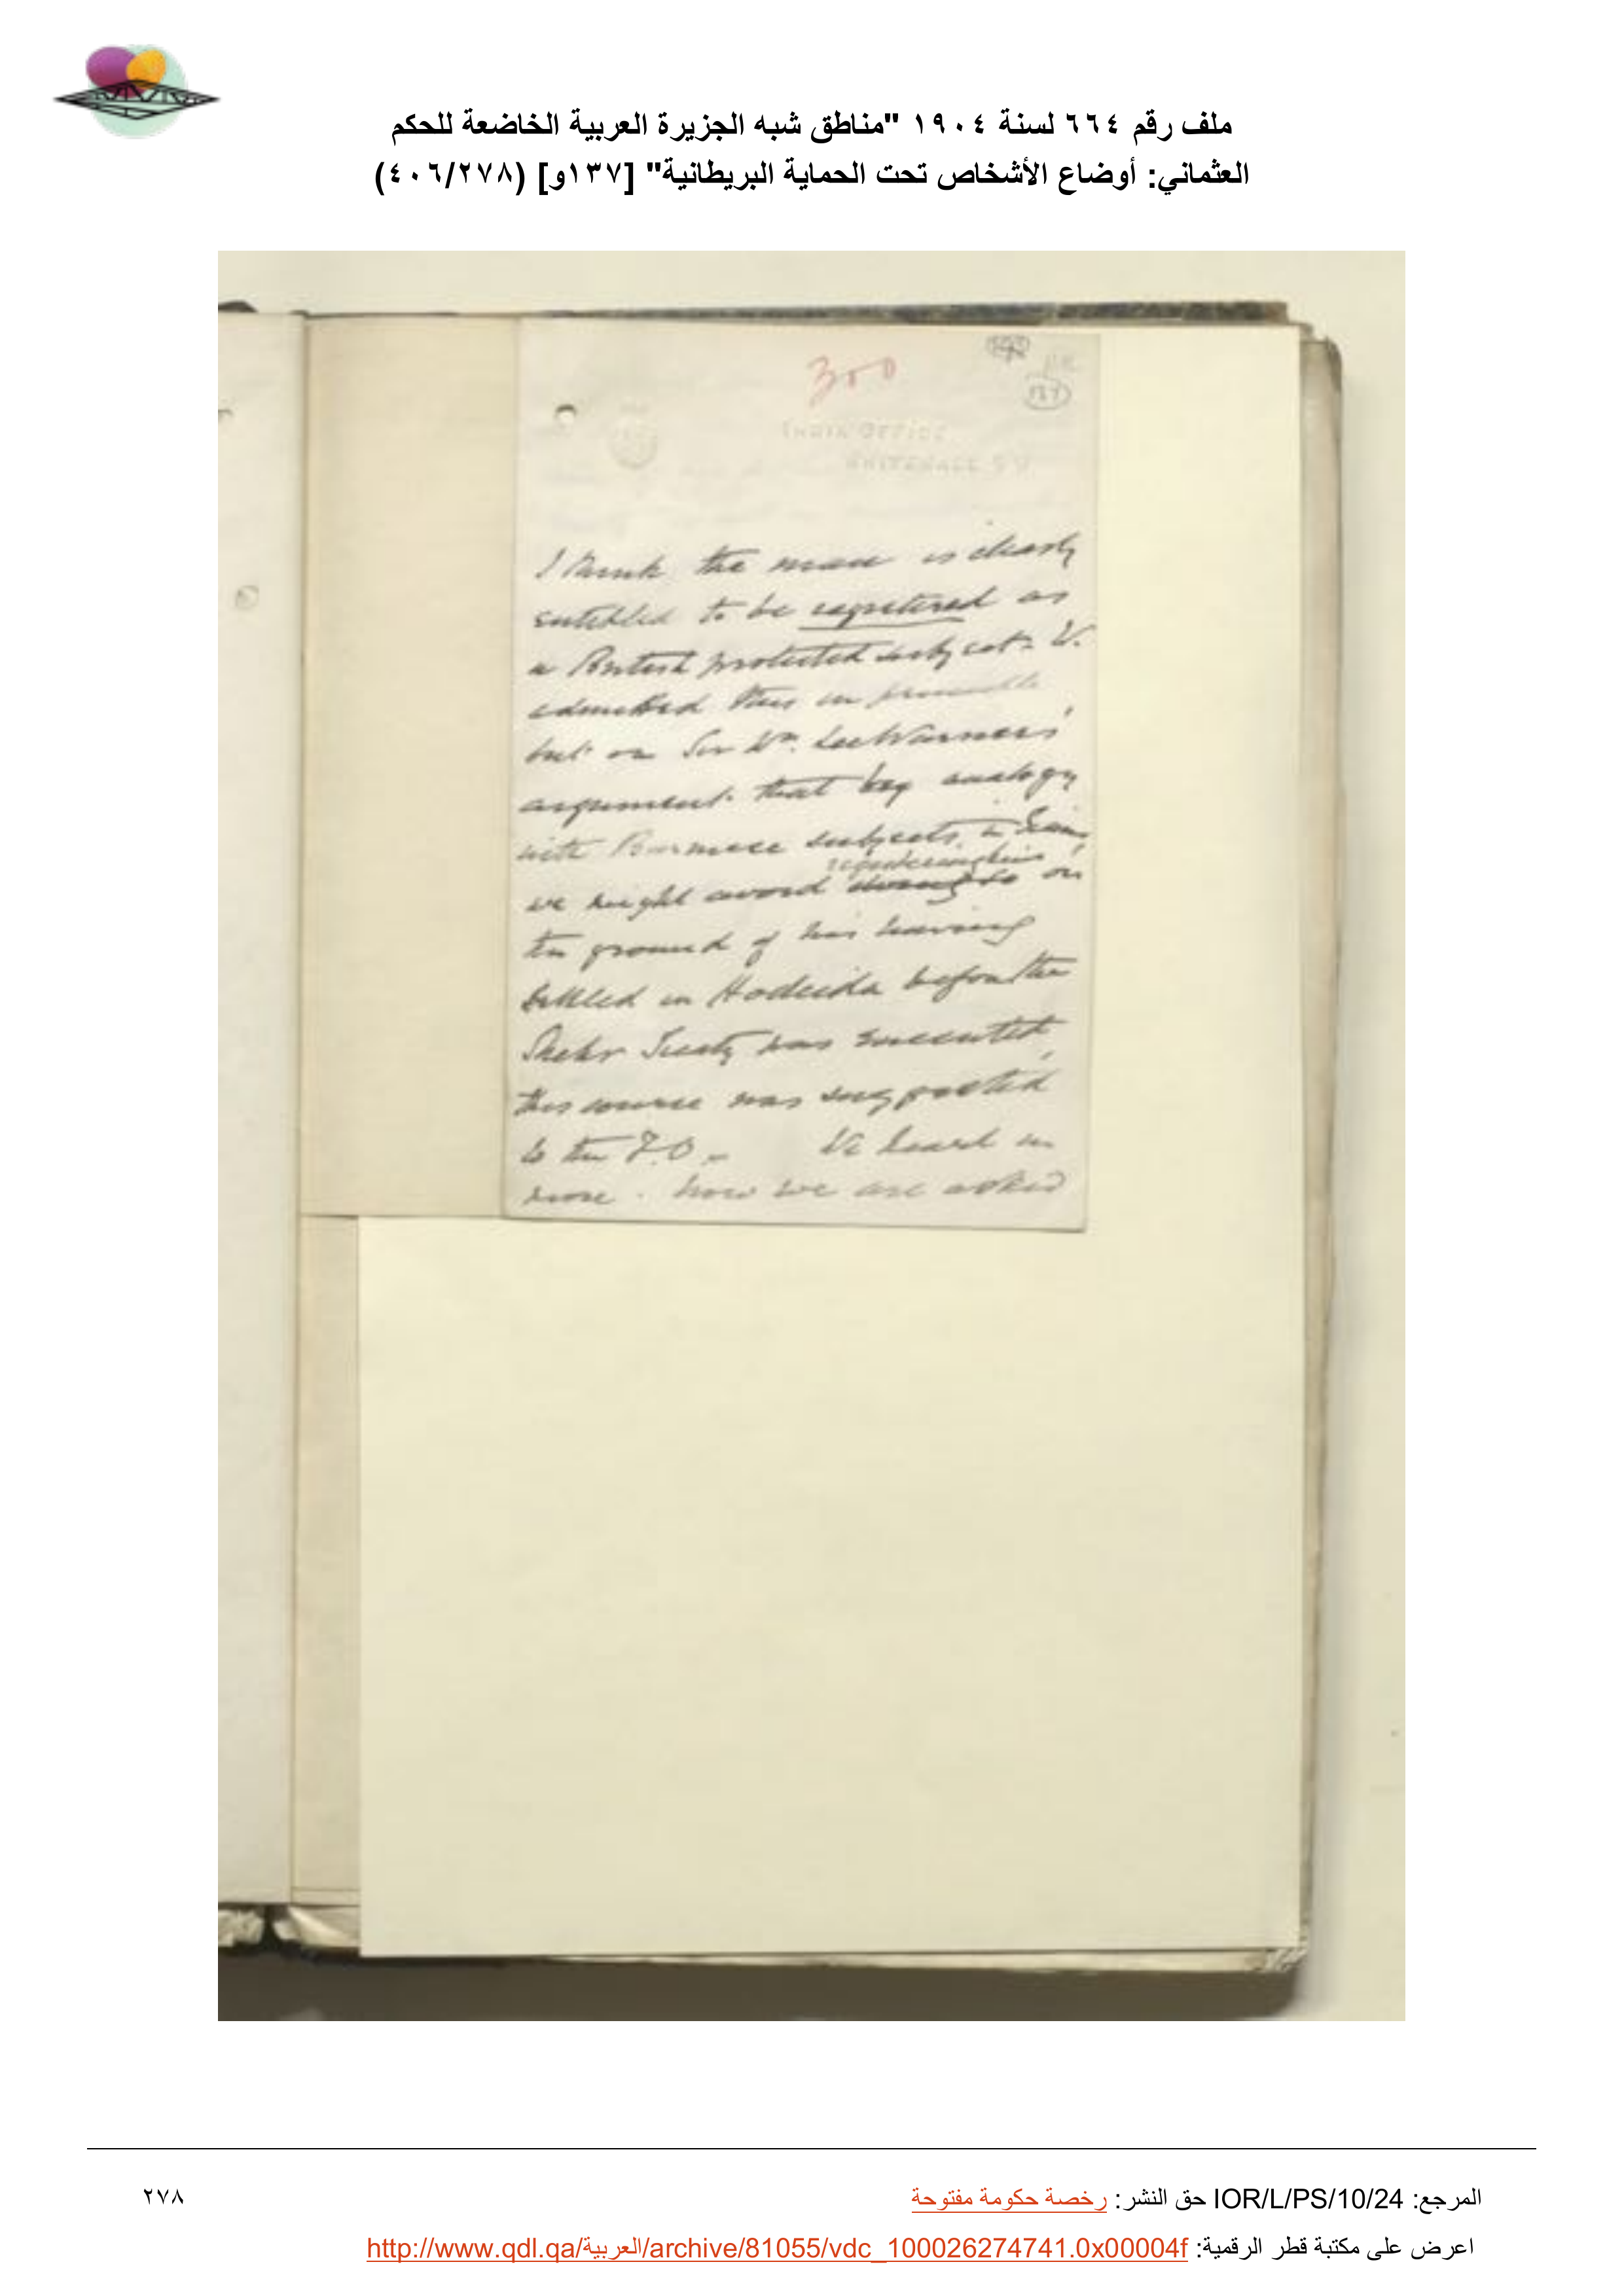 ملف رقم ٦٦٤ لسنة ١٩٠٤ "مناطق شبه الجزيرة العربية الخاضعة للحكم
العثماني: أوضاع الأشخاص تحت الحماية البريطانية" [١٣٧و] (٤٠٦/٢٧٨)
300
INDIA OFFICE
WHITEHALL S.W.
I think the man is clearly
entitled to be registered as
a British protected subject. We
admitted this in principle
but on Sir Wm. Lee Warner's
argument that by analogy
with Burmese subjects in Siam,
we might avoid registering him on
the ground of his having
settled in Hodeida before the
Shehr Treaty was executed,
this course was suggested
to the F.O. We heard no
more. Now we are asked
المرجع: IOR/L/PS/10/24 حق النشر: رخصة حكومة مفتوحة
٢٧٨
اعرض على مكتبة قطر الرقمية: http://www.qdl.qa/العربية/archive/81055/vdc_100026274741.0x00004f